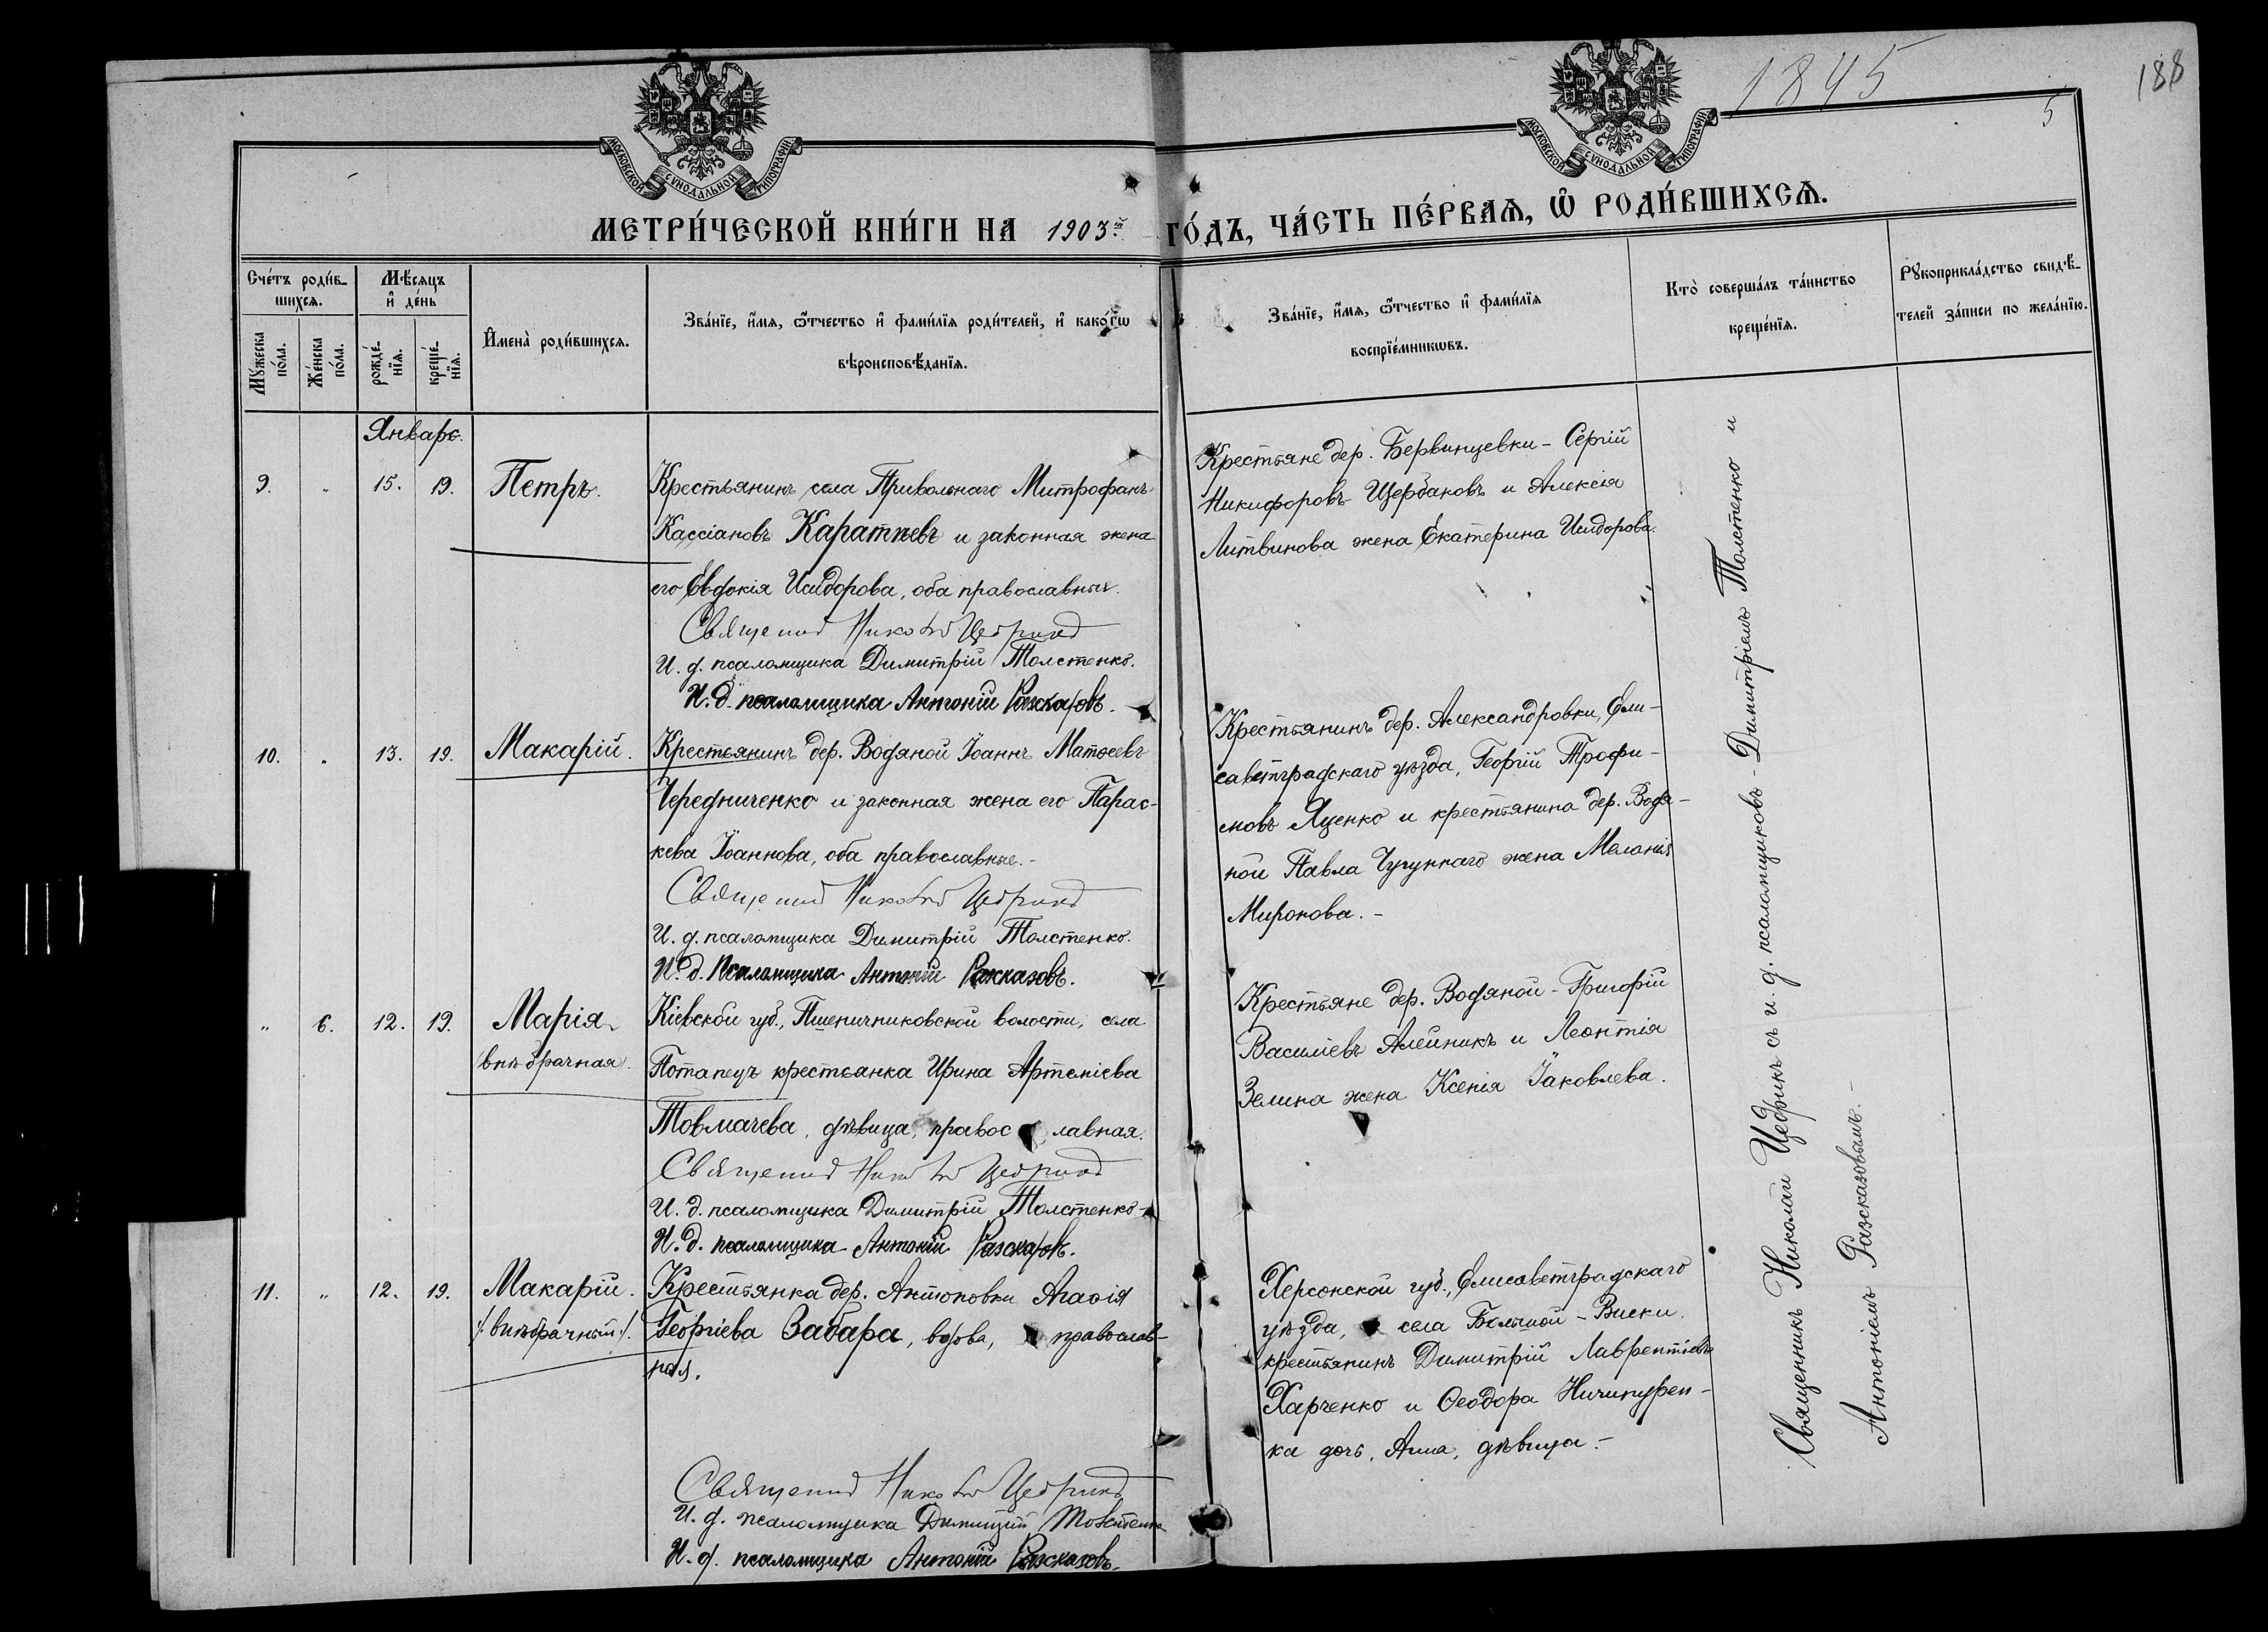 1845
188
5
МОСКОВСКОЙ СѴНОДАЛЬНОЙ ТИПОГРАФІИ
МОСКОВСКОЙ СѴНОДАЛЬНОЙ ТИПОГРАФІИ
МЕТРИ́ЧЕСКОЙ КНИ́ГИ НА 1903й ГО́ДЪ, ЧА́СТЬ ПЕ́РВАѦ, Ѡ҆ РОДИ́ВШИХСѦ.
Сче́тъ роди́в-
шихсѧ.
Мꙋ́жеска
по́ла.
Же́нска
по́ла.
Мѣ́сѧцъ
и҆ де́нь
рожде́-
нїѧ.
креще́-
нїѧ.
И҆мена̀ роди́вшихсѧ.
Зва́нїе, и҆́мѧ, ѻ҆́тчество и҆ фами́лїѧ роди́телей, и҆ како́гѡ
вѣроисповѣ́данїѧ.
Зва́нїе, и҆́мѧ, ѻ҆́тчество и҆ фами́лїѧ
воспрїе́мникѡвъ.
Кто̀ соверша́лъ та́инство
креще́нїѧ.
Рꙋкоприкла́дство свидѣ́-
телей за́писи по жела́нїю.
Январь.
9. " 15. 19. Петръ.
Крестьянинъ села Привольнаго Митрофанъ
Кассіановъ Каратѣевъ и законная жена
его Евдокія Исидорова, оба православные.
Священникъ Николай Цедрикъ
И. д. псаломщика Димитрій Толстенко.
И. д. псаломщика Антоній Разсказовъ.
Крестьяне дер. Бервинцевки - Сергій
Никифоровъ Щербаковъ и Алексія
Литвинова жена Екатерина Исидорова.
10. " 13. 19. Макарій.
Крестьянинъ дер. Водяной Іоаннъ Матѳеевъ
Чередниченко и законная жена его Парас-
кева Іоаннова, оба православные.-
Священникъ Николай Цедрикъ
И. д. псаломщика Димитрій Толстенко.
И. д. Псаломщика Антоній Разсказовъ.
Крестьянинъ дер. Александровки, Ели-
саветградскаго уѣзда, Георгій Трофи-
мовъ Яценко и крестьянина дер. Водя-
ной Павла Чугуннаго жена Меланія
Миронова.-
" 6. 12. 19. Марія
(внѣбрачная).
Кіевской губ., Пшеничниковской волости, села
Потапецъ крестьянка Ирина Артеміева
Товмачева, дѣвица, православная.
Священникъ Николай Цедрикъ
И. д. псаломщика Димитрій Толстенко
И. д. псаломщика Антоній Разсказовъ.
Крестьяне дер. Водяной - Григорій
Василіевъ Алейникъ и Леонтія
Зелина жена Ксенія Іаковлева.
11. " 12. 19. Макарій.
/:внѣбрачный:/.
Крестьянка дер. Антоновки Агаѳія
Георгіева Забара, вдова, православ-
ная.
Священникъ Николай Цедрикъ
И. д. псаломщика Димитрій Толстенко
И. д. псаломщика Антоній Разсказовъ.
Херсонской губ., Елисаветградскаго
уѣзда, села Большой - Виски,
крестьянинъ Димитрій Лаврентіевъ
Харченко и Ѳеодора Ничипурен-
ка дочь, Анна, дѣвица.-
Священникъ Николай Цедрикъ съ и. д. псаломщиковъ - Димитріемъ Толстенко и
Антоніемъ Разсказовымъ.-